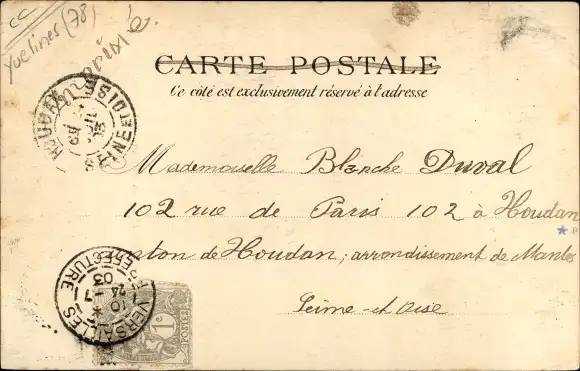 cc
Yvelines (78)
CARTE POSTALE
Ce côté est exclusivement réservé à l'adresse
HOUDAN
SEINE ET OISE
Mademoiselle Blanche Duval
102 rue de Paris 102 à Houdan
canton de Houdan; arrondissement de Mantes
Seine-et-Oise
VERSAILLES
PREFECTURE
10
24 -7
03
1c
POSTES